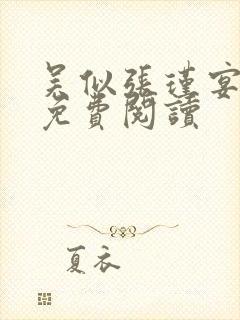 吴似張瑾宴
免費閱讀
夏衣